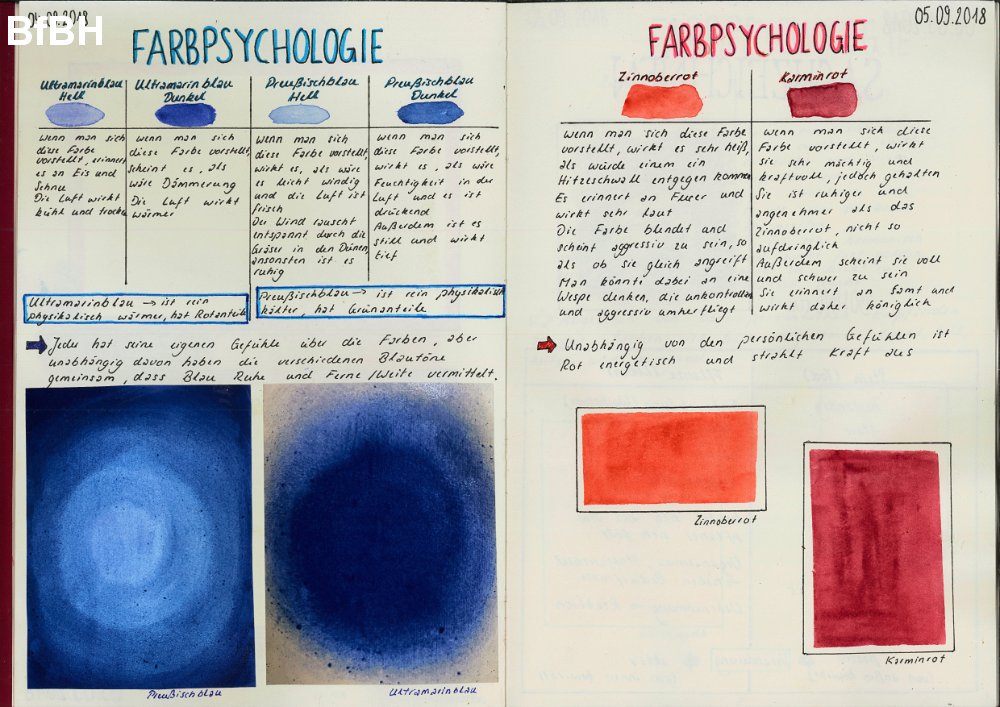 04.09.2018
BfBH
FARBPSYCHOLOGIE
Ultramarinblau
Hell
wenn man sich
diese Farbe
vorstellt, erinnert
es an Eis und
Schnee
Die Luft wirkt
kühl und trocken
Ultramarinblau
Dunkel
wenn man sich
diese Farbe vorstellt,
scheint es, als
wäre Dämmerung
Die Luft wirkt
wärmer
Preußischblau
Hell
wenn man sich
diese Farbe vorstellt,
wirkt es, als wäre
es leicht windig
und die Luft ist
frisch
Der Wind rauscht
entspannt durch die
Gräser in den Dünen,
ansonsten ist es
ruhig
Preußischblau
Dunkel
wenn man sich
diese Farbe vorstellt,
wirkt es, als wäre
Feuchtigkeit in der
Luft und es ist
drückend
Außerdem ist es
still und wirkt
tief
Ultramarinblau → ist rein
physikalisch wärmer, hat Rotanteile
Preußischblau → ist rein physikalisch
kälter, hat Grünanteile
Jeder hat seine eigenen Gefühle über die Farben, aber
unabhängig davon haben die verschiedenen Blautöne
gemeinsam, dass Blau Ruhe und Ferne/Weite vermittelt.
Preußischblau
Ultramarinblau
05.09.2018
FARBPSYCHOLOGIE
Zinnoberrot
wenn man sich diese Farbe
vorstellt, wirkt es sehr heiß,
als würde einem ein
Hitzeschwall entgegen kommen
Es erinnert an Feuer und
wirkt sehr laut
Die Farbe blendet und
scheint aggressiv zu sein, so
als ob sie gleich angreift
Man könnte dabei an eine
Wespe denken, die unkontrolliert
und aggressiv umherfliegt
Karminrot
wenn man sich diese
Farbe vorstellt, wirkt
sie sehr mächtig und
kraftvoll, jedoch gehalten
Sie ist ruhiger und
angenehmer als das
Zinnoberrot, nicht so
aufdringlich
Außerdem scheint sie voll
und schwer zu sein
Sie erinnert an Samt und
wirkt daher königlich
Unabhängig von den persönlichen Gefühlen ist
Rot energetisch und strahlt Kraft aus
Zinnoberrot
Karminrot